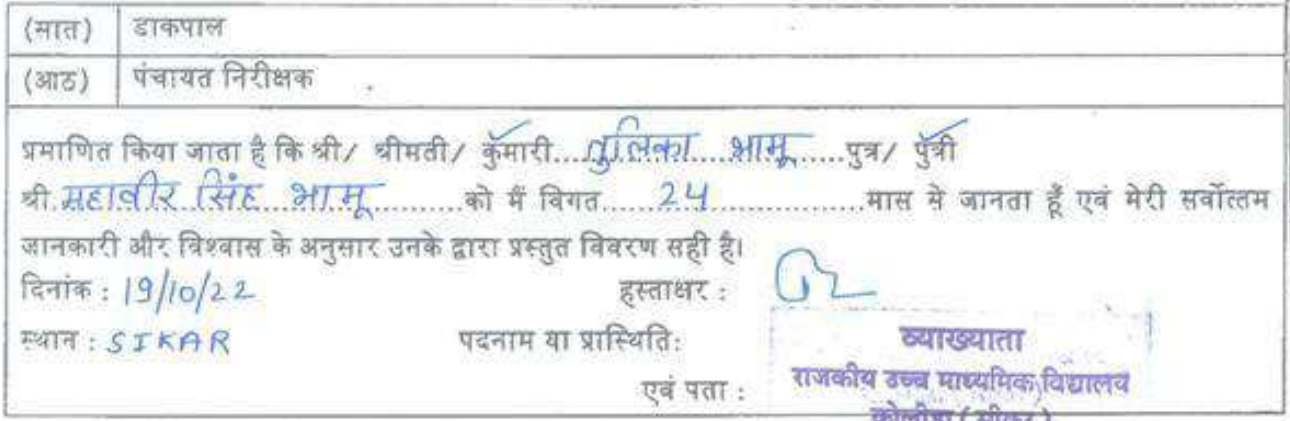 (सात) डाकपाल
(आठ) पंचायत निरीक्षक
प्रमाणित किया जाता है कि श्री/ श्रीमती/ कुमारी....तुलिका भामू.....पुत्र/ पुत्री
श्री.महावीर सिंह भामू..........को मैं विगत.....24....................मास से जानता हूँ एवं मेरी सर्वोत्तम
जानकारी और विश्वास के अनुसार उनके द्वारा प्रस्तुत विवरण सही है।
दिनांक : 19/10/22 हस्ताक्षर :
स्थान : SIKAR पदनाम या प्रास्थिति: व्याख्याता
एवं पता : राजकीय उच्च माध्यमिक विद्यालय
(सीकर)